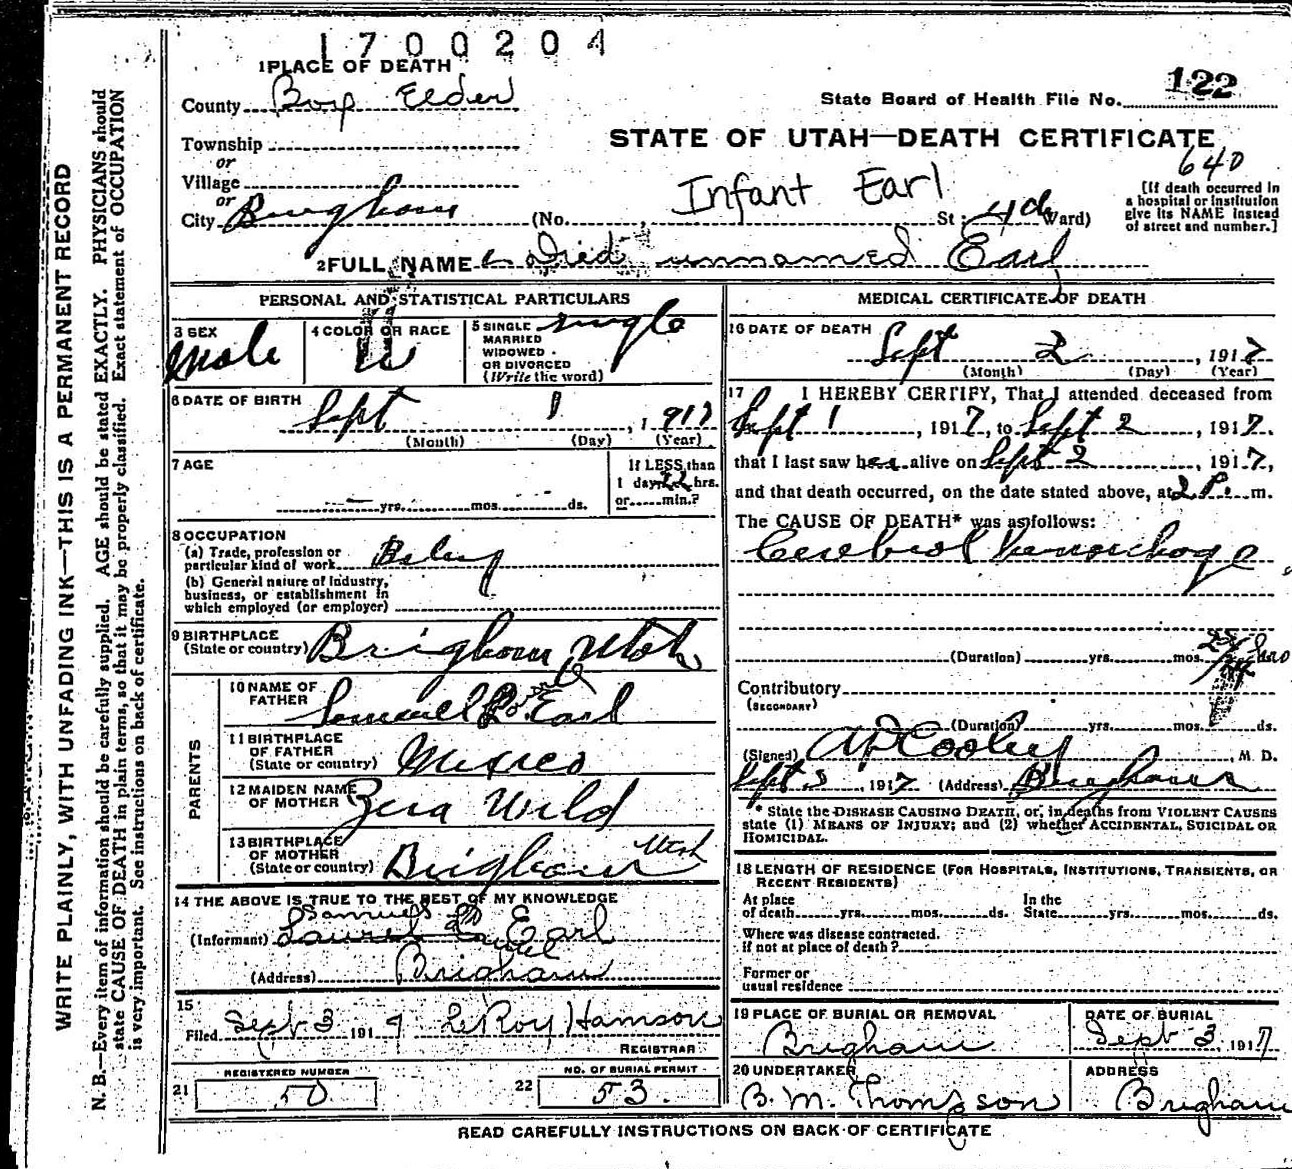 1700204
1 PLACE OF DEATH
122
County Box Elder
State Board of Health File No.
Township
STATE OF UTAH—DEATH CERTIFICATE
or
640
Village
or
Infant Earl
[If death occurred in
a hospital or institution
give its NAME instead
of street and number.]
City Brigham (No. , St.; 4th Ward)
2 FULL NAME died unnamed Earl
PERSONAL AND STATISTICAL PARTICULARS
3 SEX
Male
4 COLOR OR RACE
W
5 SINGLE
MARRIED
WIDOWED
OR DIVORCED
(Write the word)
single
6 DATE OF BIRTH
Sept 1, 1917
(Month) (Day) (Year)
7 AGE
yrs. mos. ds.
If LESS than
1 day, 22 hrs.
or min.?
8 OCCUPATION
(a) Trade, profession or
particular kind of work Baby
(b) General nature of industry,
business, or establishment in
which employed (or employer)
9 BIRTHPLACE
(State or country) Brigham Utah
PARENTS
10 NAME OF
FATHER
Samuel Earl
11 BIRTHPLACE
OF FATHER
(State or country) Mexico
12 MAIDEN NAME
OF MOTHER Zera Wild
13 BIRTHPLACE
OF MOTHER
(State or country) Brigham Utah
14 THE ABOVE IS TRUE TO THE BEST OF MY KNOWLEDGE
Samuel
(Informant) Laurel Earl
(Address) Brigham
15
Filed Sept 3 1917 LeRoy Hamson
REGISTRAR
REGISTERED NUMBER
21 50
NO. OF BURIAL PERMIT
22 53.
MEDICAL CERTIFICATE OF DEATH
16 DATE OF DEATH
Sept 2, 1917
(Month) (Day) (Year)
17 I HEREBY CERTIFY, That I attended deceased from
Sept 1, 1917, to Sept 2, 1917.
that I last saw h alive on Sept 2, 1917,
and that death occurred, on the date stated above, at 2 P. m.
The CAUSE OF DEATH* was as follows:
Cerebral hemorrhage
(Duration) yrs. mos.
Contributory
(SECONDARY)
(Duration) yrs. mos. ds.
(Signed) AD Cooley, M. D.
Sept 3, 1917 (Address) Brigham
* State the DISEASE CAUSING DEATH, or, in deaths from VIOLENT CAUSES
state (1) MEANS OF INJURY; and (2) whether ACCIDENTAL, SUICIDAL OR
HOMICIDAL.
18 LENGTH OF RESIDENCE (FOR HOSPITALS, INSTITUTIONS, TRANSIENTS, OR
RECENT RESIDENTS)
At place
of death yrs. mos. ds.
In the
State yrs. mos. ds.
Where was disease contracted.
if not at place of death?
Former or
usual residence
19 PLACE OF BURIAL OR REMOVAL
Brigham
DATE OF BURIAL
Sept 3, 1917
20 UNDERTAKER
B. M. Thompson
ADDRESS
Brigham
READ CAREFULLY INSTRUCTIONS ON BACK OF CERTIFICATE
WRITE PLAINLY, WITH UNFADING INK—THIS IS A PERMANENT RECORD
N. B.—Every item of information should be carefully supplied. AGE should be stated EXACTLY. PHYSICIANS should
state CAUSE OF DEATH in plain terms, so that it may be properly classified. Exact statement of OCCUPATION
is very important. See instructions on back of certificate.